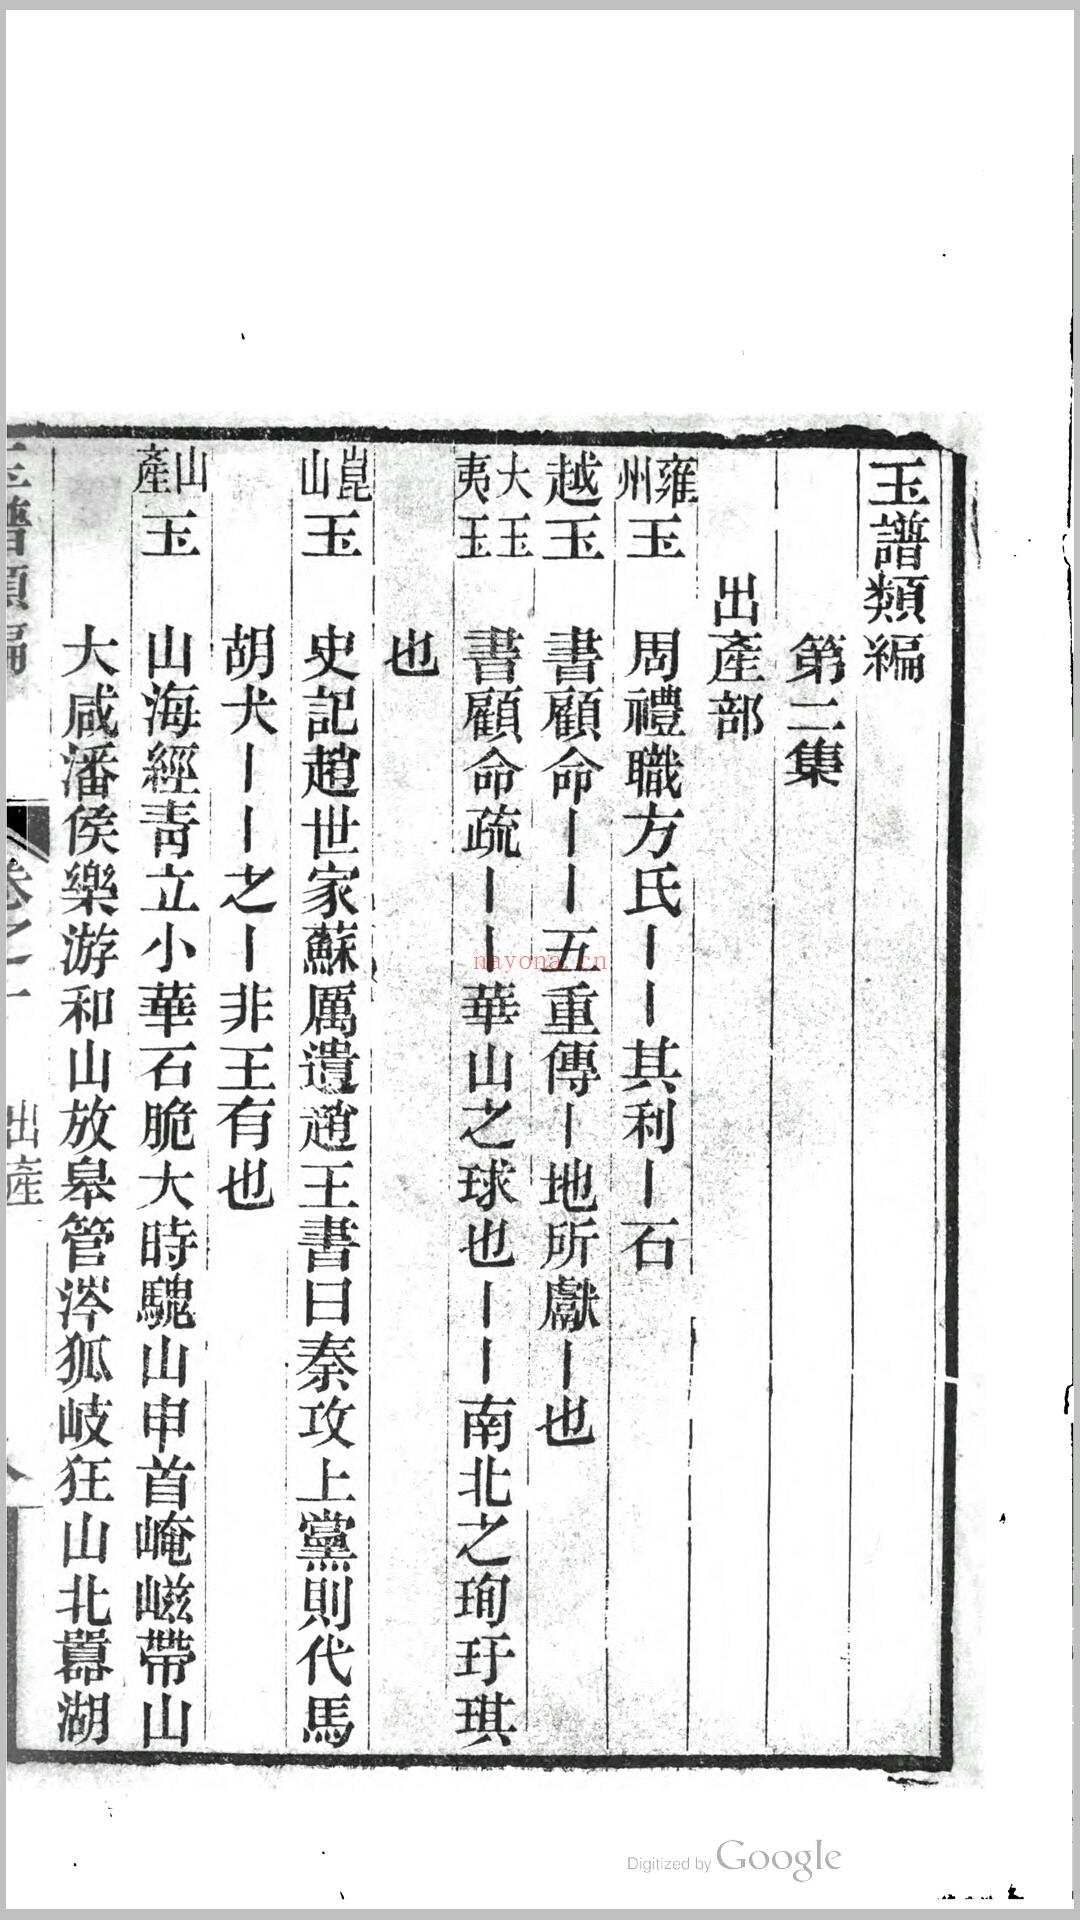 玉譜類編
第二集
出產部
雍州玉 周禮職方氏丨丨其利丨石
越玉 書顧命丨丨五重傳丨地所獻丨也
大玉夷玉 書顧命疏丨丨華山之球也丨丨南北之珣玗琪
也
崑山玉 史記趙世家蘇厲遺趙王書曰秦攻上黨則代馬
胡犬丨丨之丨非王有也
山產玉 山海經青立小華石脆大時騩山申首崦嵫帶山
大咸潘侯樂游和山放皋管涔狐岐狂山北嚻湖
玉譜類編 卷之一 出產
nayona.cn
Digitized by Google